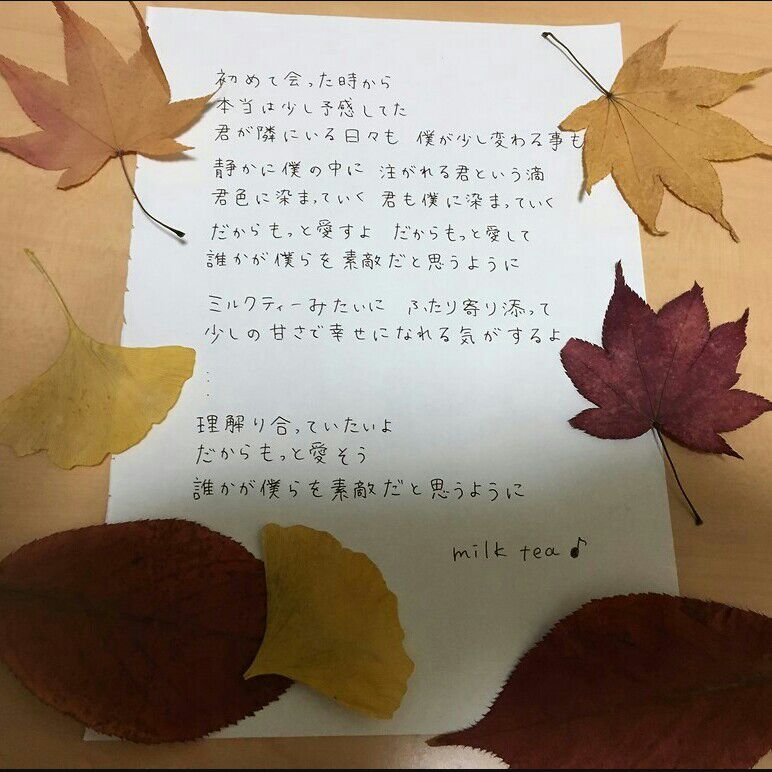 初めて会った時から
本当は少し予感してた
君が隣にいる日々も 僕が少し変わる事も
静かに僕の中に 注がれる君という滴
君色に染まっていく 君も僕に染まっていく
だからもっと愛すよ だからもっと愛して
誰かが僕らを素敵だと思うように
ミルクティーみたいに ふたり寄り添って
少しの甘さで幸せになれる気がするよ
⋮
理解り合っていたいよ
だからもっと愛そう
誰かが僕らを素敵だと思うように
milk tea♪